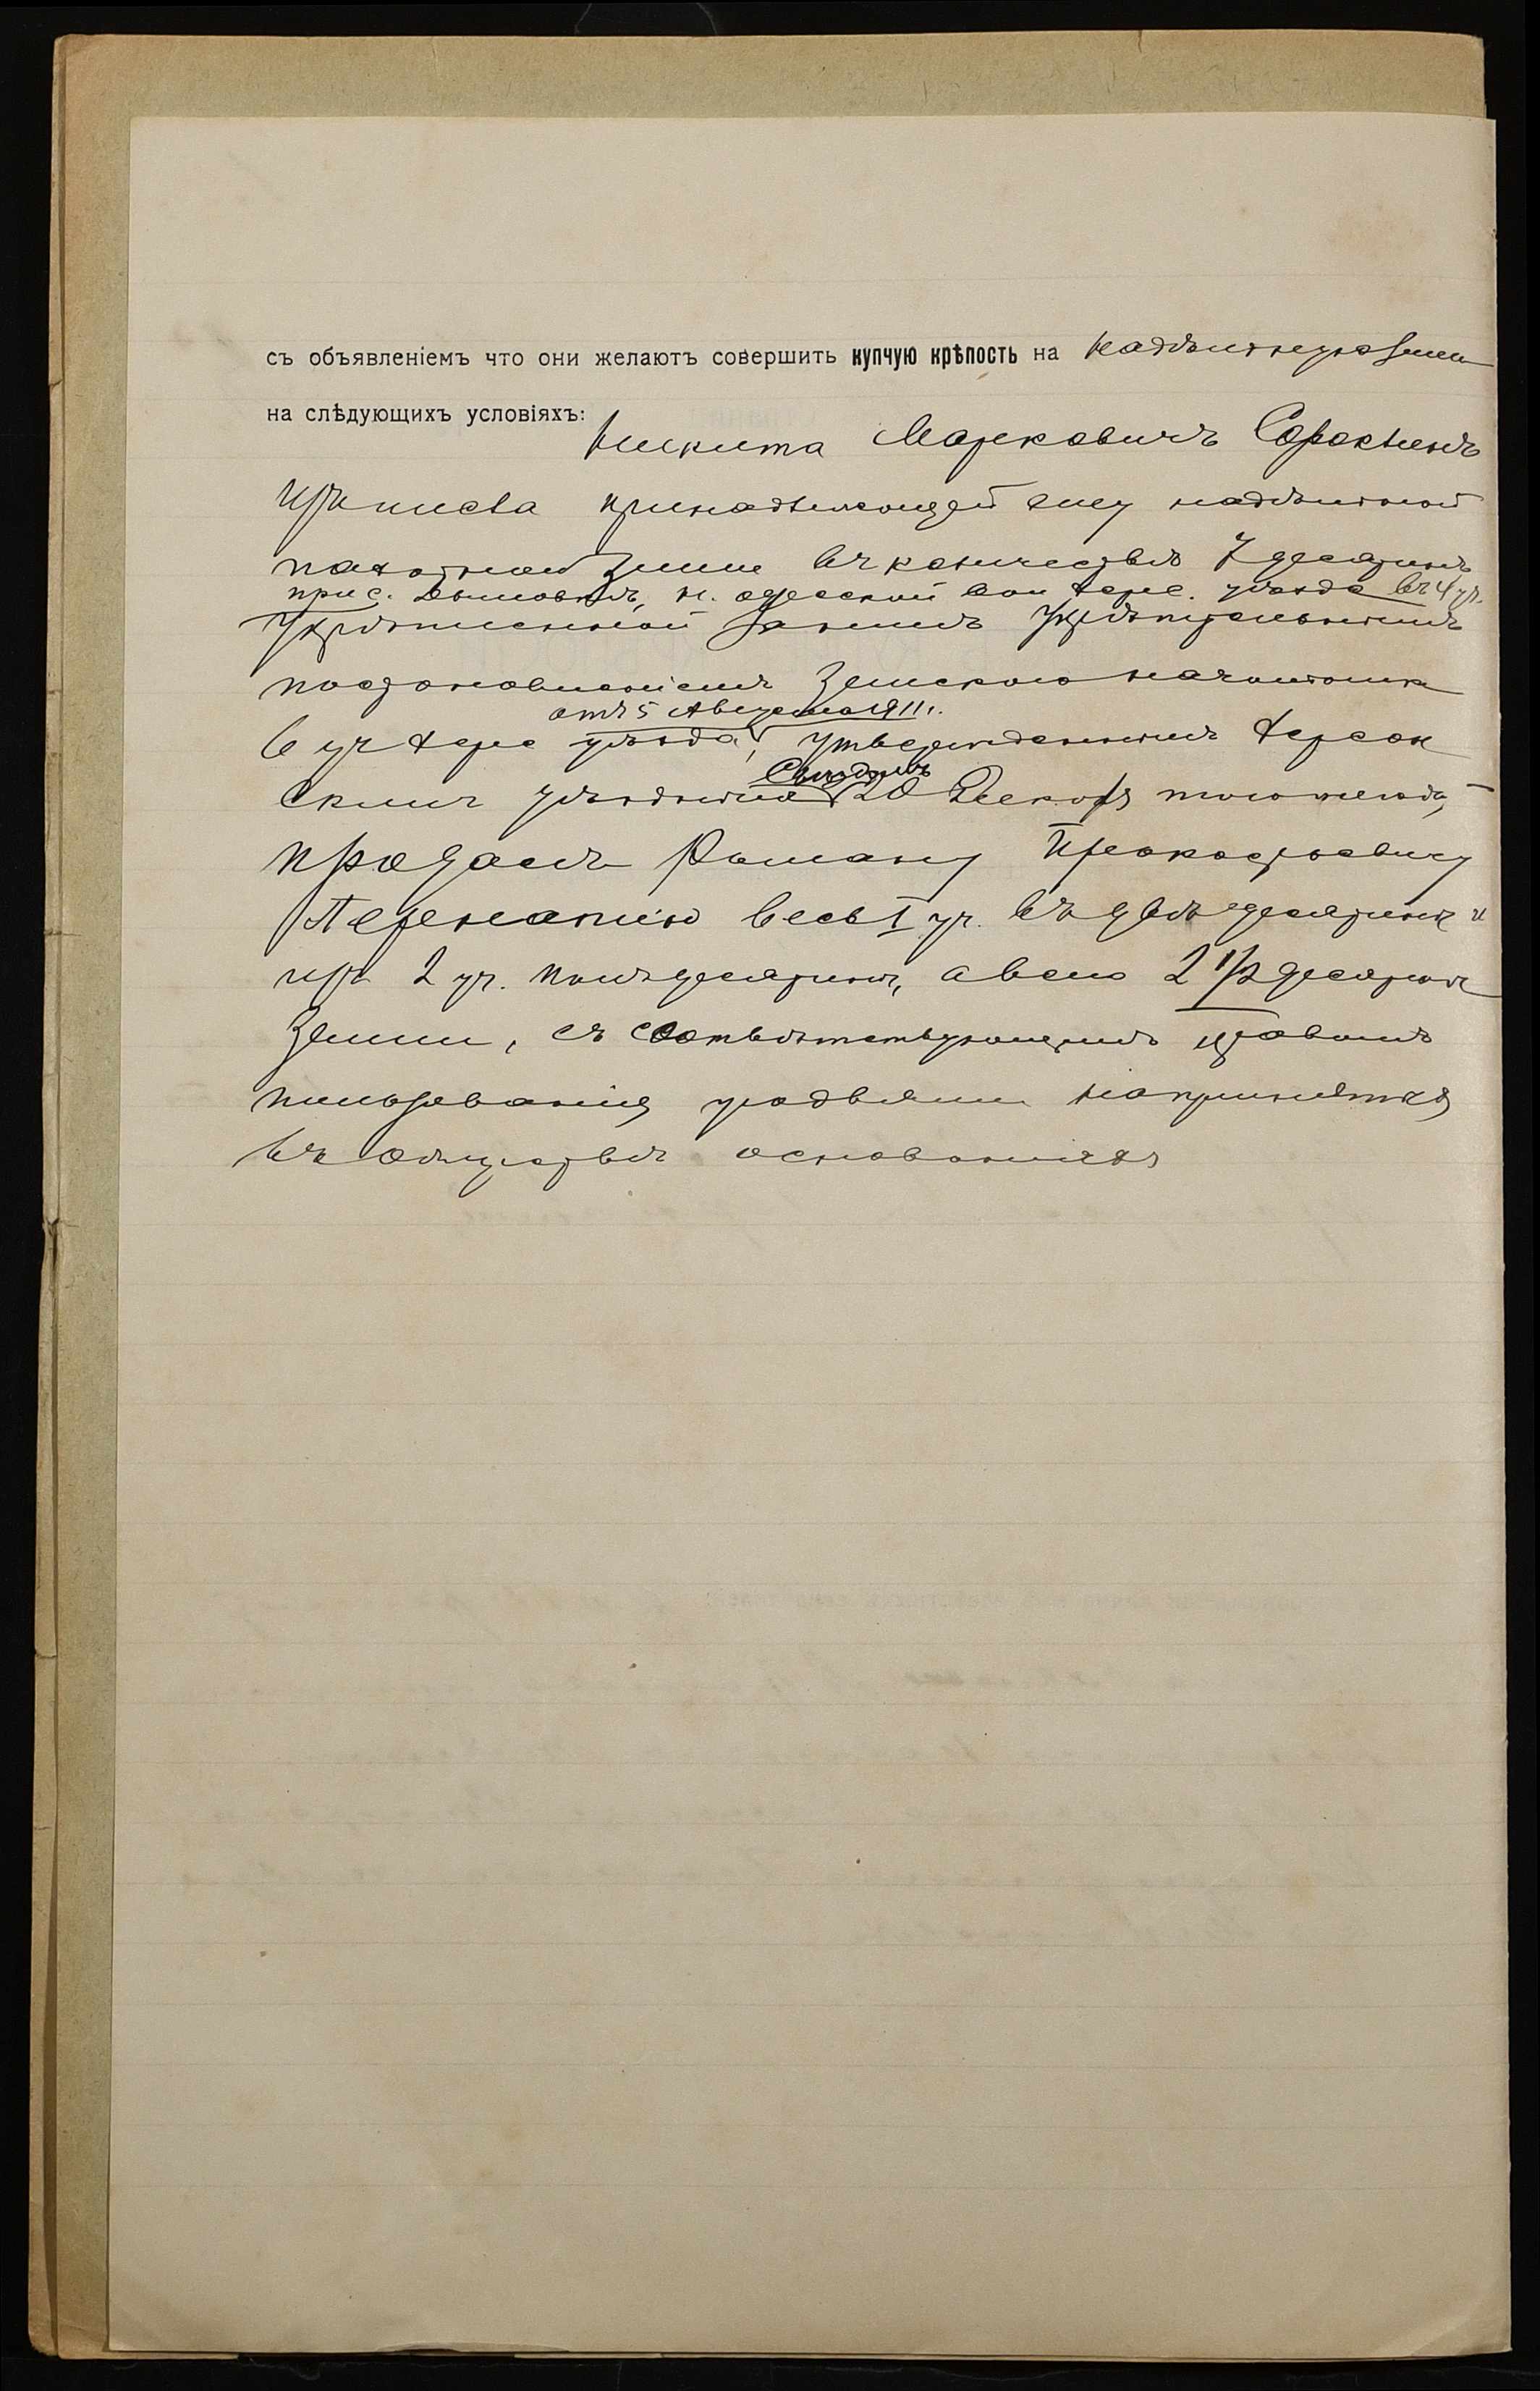 съ объявленіемъ что они желаютъ совершить купчую крѣпость на надѣльную земл
на слѣдующихъ условіяхъ:
Никита Марковичъ
изъ числа принадлежащей ему надѣльной
пахотной земли въ количествѣ 7 десятинъ
при с. н. одесской вол херс. уѣзда въ 4 уч.
укрѣпленной за нимъ укрѣпительнымъ
постановленіемъ земскаго начальника
отъ 5 Августа 1911 г.
6 уч херс уѣзда, утвержденнымъ херсон
Съѣздомъ
скимъ уѣзднымъ 20 Декабря того же года,
продаетъ Роману Прокофьевичу
весь 1 уч. въ двѣ десятины и
изъ 2 уч. полъ десятины, а всего 2 1/2 десятины
земли, съ соотвѣтствующимъ правомъ
пользованія угодьями на принятыхъ
въ обществѣ основаніяхъ